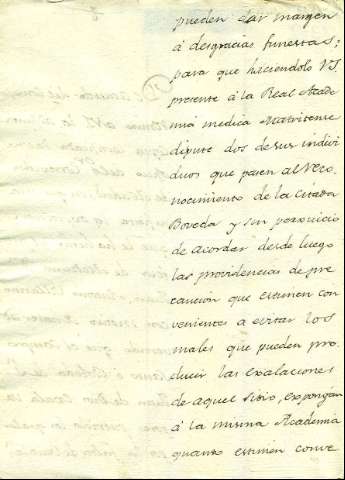 pueden dar margen
á desgracias funestas;
para que haciendolo VS
presente á la Real Acade
mia medica Matritense
dipute dos de sus indivi
duos que pasen al reco
nocimiento de la citada
Boveda y sin perjuicio
de acordar desde luego
las providencias de pre
caucion que estimen con
venientes a evitar los
males que pueden pro
ducir las exalaciones
de aquel sitio, expongan
á la misma Academia
quanto estimen conve